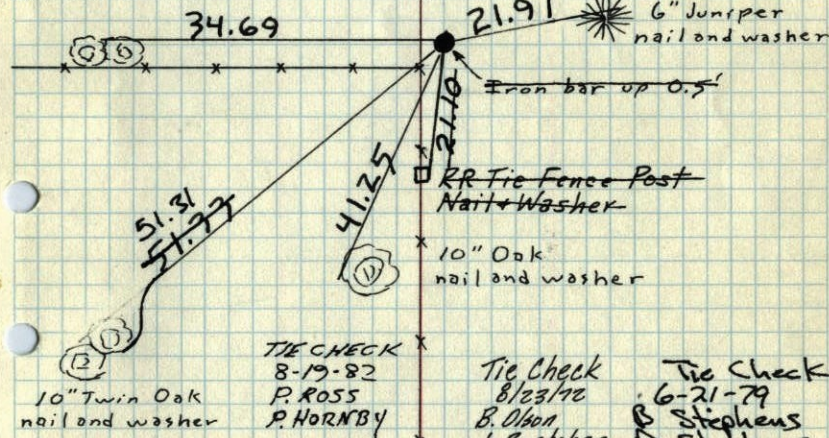 34.69
21.91
6" Juniper
nail and washer
Iron bar up 0.5'
21.10
RR Tie Fence Post
Nail & Washer
41.25
51.31
51.77
10" Oak
nail and washer
10" Twin Oak
nail and washer
TIE CHECK
8-19-82
P. ROSS
P. HORNBY
Tie Check
8/23/72
B. Olson
Tie Check
6-21-79
B Stephens